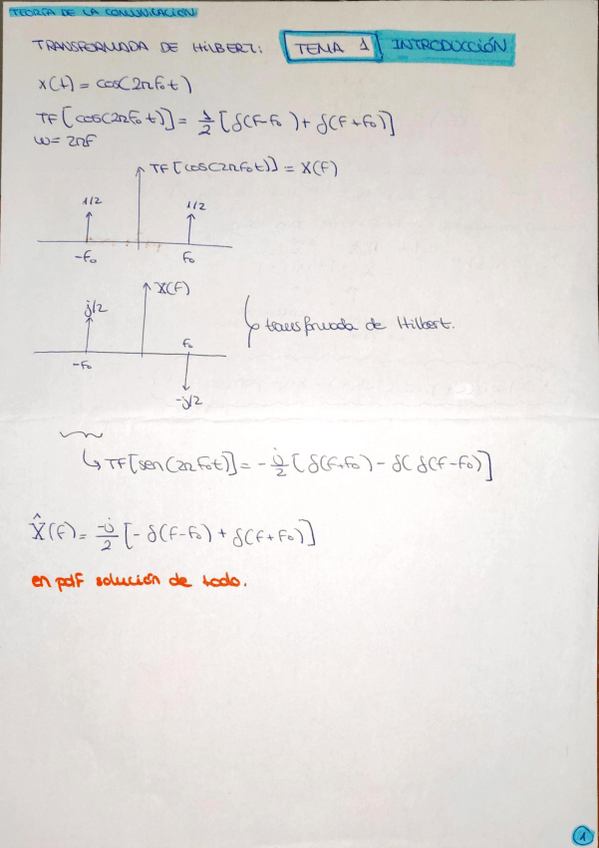 TEORÍA DE LA COMUNICACIÓN
TRANSFORMADA DE HILBERT: TEMA 1 INTRODUCCIÓN
x(t) = cos(2πf₀t)
TF[cos(2πf₀t)] = 1/2 [δ(f-f₀) + δ(f+f₀)]
ω = 2πf
TF[cos(2πf₀t)] = X(f)
1/2 1/2
-f₀ f₀
X(f)
j/2
f₀
transformada de Hilbert.
-f₀
-j/2
↳ TF[sen(2πf₀t)] = -j/2 [δ(f+f₀) - δ( δ(f-f₀)]
X̂(f) = -j/2 [-δ(f-f₀) + δ(f+f₀)]
en pdf solución de todo.
1